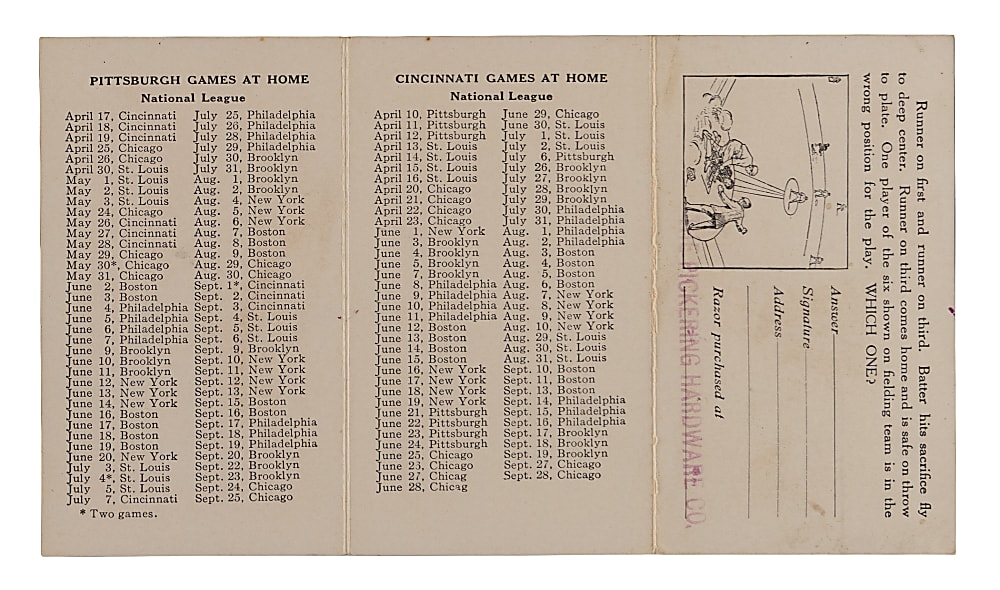 PITTSBURGH GAMES AT HOME
National League
April 17, Cincinnati
April 18, Cincinnati
April 19, Cincinnati
April 25, Chicago
April 26, Chicago
April 30, St. Louis
May 1, St. Louis
May 2, St. Louis
May 3, St. Louis
May 24, Chicago
May 26, Cincinnati
May 27, Cincinnati
May 28, Cincinnati
May 29, Chicago
May 30*, Chicago
May 31, Chicago
June 2, Boston
June 3, Boston
June 4, Philadelphia
June 5, Philadelphia
June 6, Philadelphia
June 7, Philadelphia
June 9, Brooklyn
June 10, Brooklyn
June 11, Brooklyn
June 12, New York
June 13, New York
June 14, New York
June 16, Boston
June 17, Boston
June 18, Boston
June 19, Boston
June 20, New York
July 3, St. Louis
July 4*, St. Louis
July 5, St. Louis
July 7, Cincinnati
July 25, Philadelphia
July 26, Philadelphia
July 28, Philadelphia
July 29, Philadelphia
July 30, Brooklyn
July 31, Brooklyn
Aug. 1, Brooklyn
Aug. 2, Brooklyn
Aug. 4, New York
Aug. 5, New York
Aug. 6, New York
Aug. 7, Boston
Aug. 8, Boston
Aug. 9, Boston
Aug. 29, Chicago
Aug. 30, Chicago
Sept. 1*, Cincinnati
Sept. 2, Cincinnati
Sept. 3, Cincinnati
Sept. 4, St. Louis
Sept. 5, St. Louis
Sept. 6, St. Louis
Sept. 9, Brooklyn
Sept. 10, New York
Sept. 11, New York
Sept. 12, New York
Sept. 13, New York
Sept. 15, Boston
Sept. 16, Boston
Sept. 17, Philadelphia
Sept. 18, Philadelphia
Sept. 19, Philadelphia
Sept. 20, Brooklyn
Sept. 22, Brooklyn
Sept. 23, Brooklyn
Sept. 24, Chicago
Sept. 25, Chicago
* Two games.
CINCINNATI GAMES AT HOME
National League
April 10, Pittsburgh
April 11, Pittsburgh
April 12, Pittsburgh
April 13, St. Louis
April 14, St. Louis
April 15, St. Louis
April 16, St. Louis
April 20, Chicago
April 21, Chicago
April 22, Chicago
April 23, Chicago
June 1, New York
June 3, Brooklyn
June 4, Brooklyn
June 5, Brooklyn
June 7, Brooklyn
June 8, Philadelphia
June 9, Philadelphia
June 10, Philadelphia
June 11, Philadelphia
June 12, Boston
June 13, Boston
June 14, Boston
June 15, Boston
June 16, New York
June 17, New York
June 18, New York
June 19, New York
June 21, Pittsburgh
June 22, Pittsburgh
June 23, Pittsburgh
June 24, Pittsburgh
June 25, Chicago
June 23, Chicago
June 27, Chicag
June 28, Chicag
June 29, Chicago
June 30, St. Louis
July 1, St. Louis
July 2, St. Louis
July 6, Pittsburgh
July 26, Brooklyn
July 27, Brooklyn
July 28, Brooklyn
July 29, Brooklyn
July 30, Philadelphia
July 31, Philadelphia
Aug. 1, Philadelphia
Aug. 2, Philadelphia
Aug. 3, Boston
Aug. 4, Boston
Aug. 5, Boston
Aug. 6, Boston
Aug. 7, New York
Aug. 8, New York
Aug. 9, New York
Aug. 10, New York
Aug. 29, St. Louis
Aug. 30, St. Louis
Aug. 31, St. Louis
Sept. 10, Boston
Sept. 11, Boston
Sept. 13, Boston
Sept. 14, Philadelphia
Sept. 15, Philadelphia
Sept. 16, Philadelphia
Sept. 17, Brooklyn
Sept. 18, Brooklyn
Sept. 19, Brooklyn
Sept. 27, Chicago
Sept. 28, Chicago
Runner on first and runner on third. Batter hits sacrifice fly
to deep center. Runner on third comes home and is safe on throw
to plate. One player of the six shown on fielding team is in the
wrong position for the play. WHICH ONE?
Answer
Signature
Address
Razor purchased at
PICKERING HARDWARE CO.